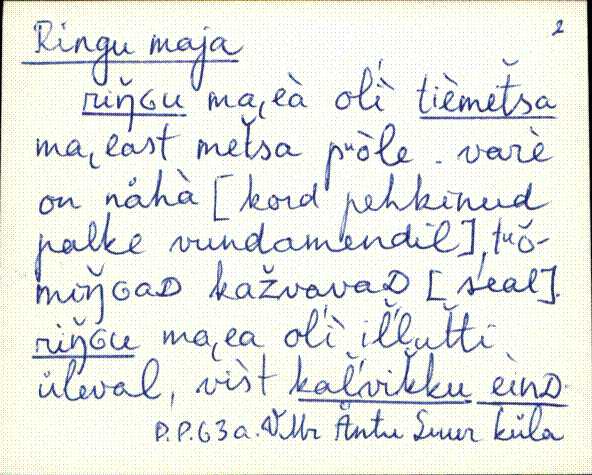 2
Ringu maja
riŋ̆ɢu ma,eà olì tièmet̆sa
ma,east met̆sa pᵘòle. varè
on nåhà [kord pehkinud
palke vundamendil], tᵘŏ-
miŋ̆ɢaᴅ kažvavaᴅ [seal].
riŋ̆ɢu ma,ea olì il̆lut̆ti
üleval, vist kal̆vik̆ku èinᴅ
P.P. 63a. VMr Äntu Suur küla